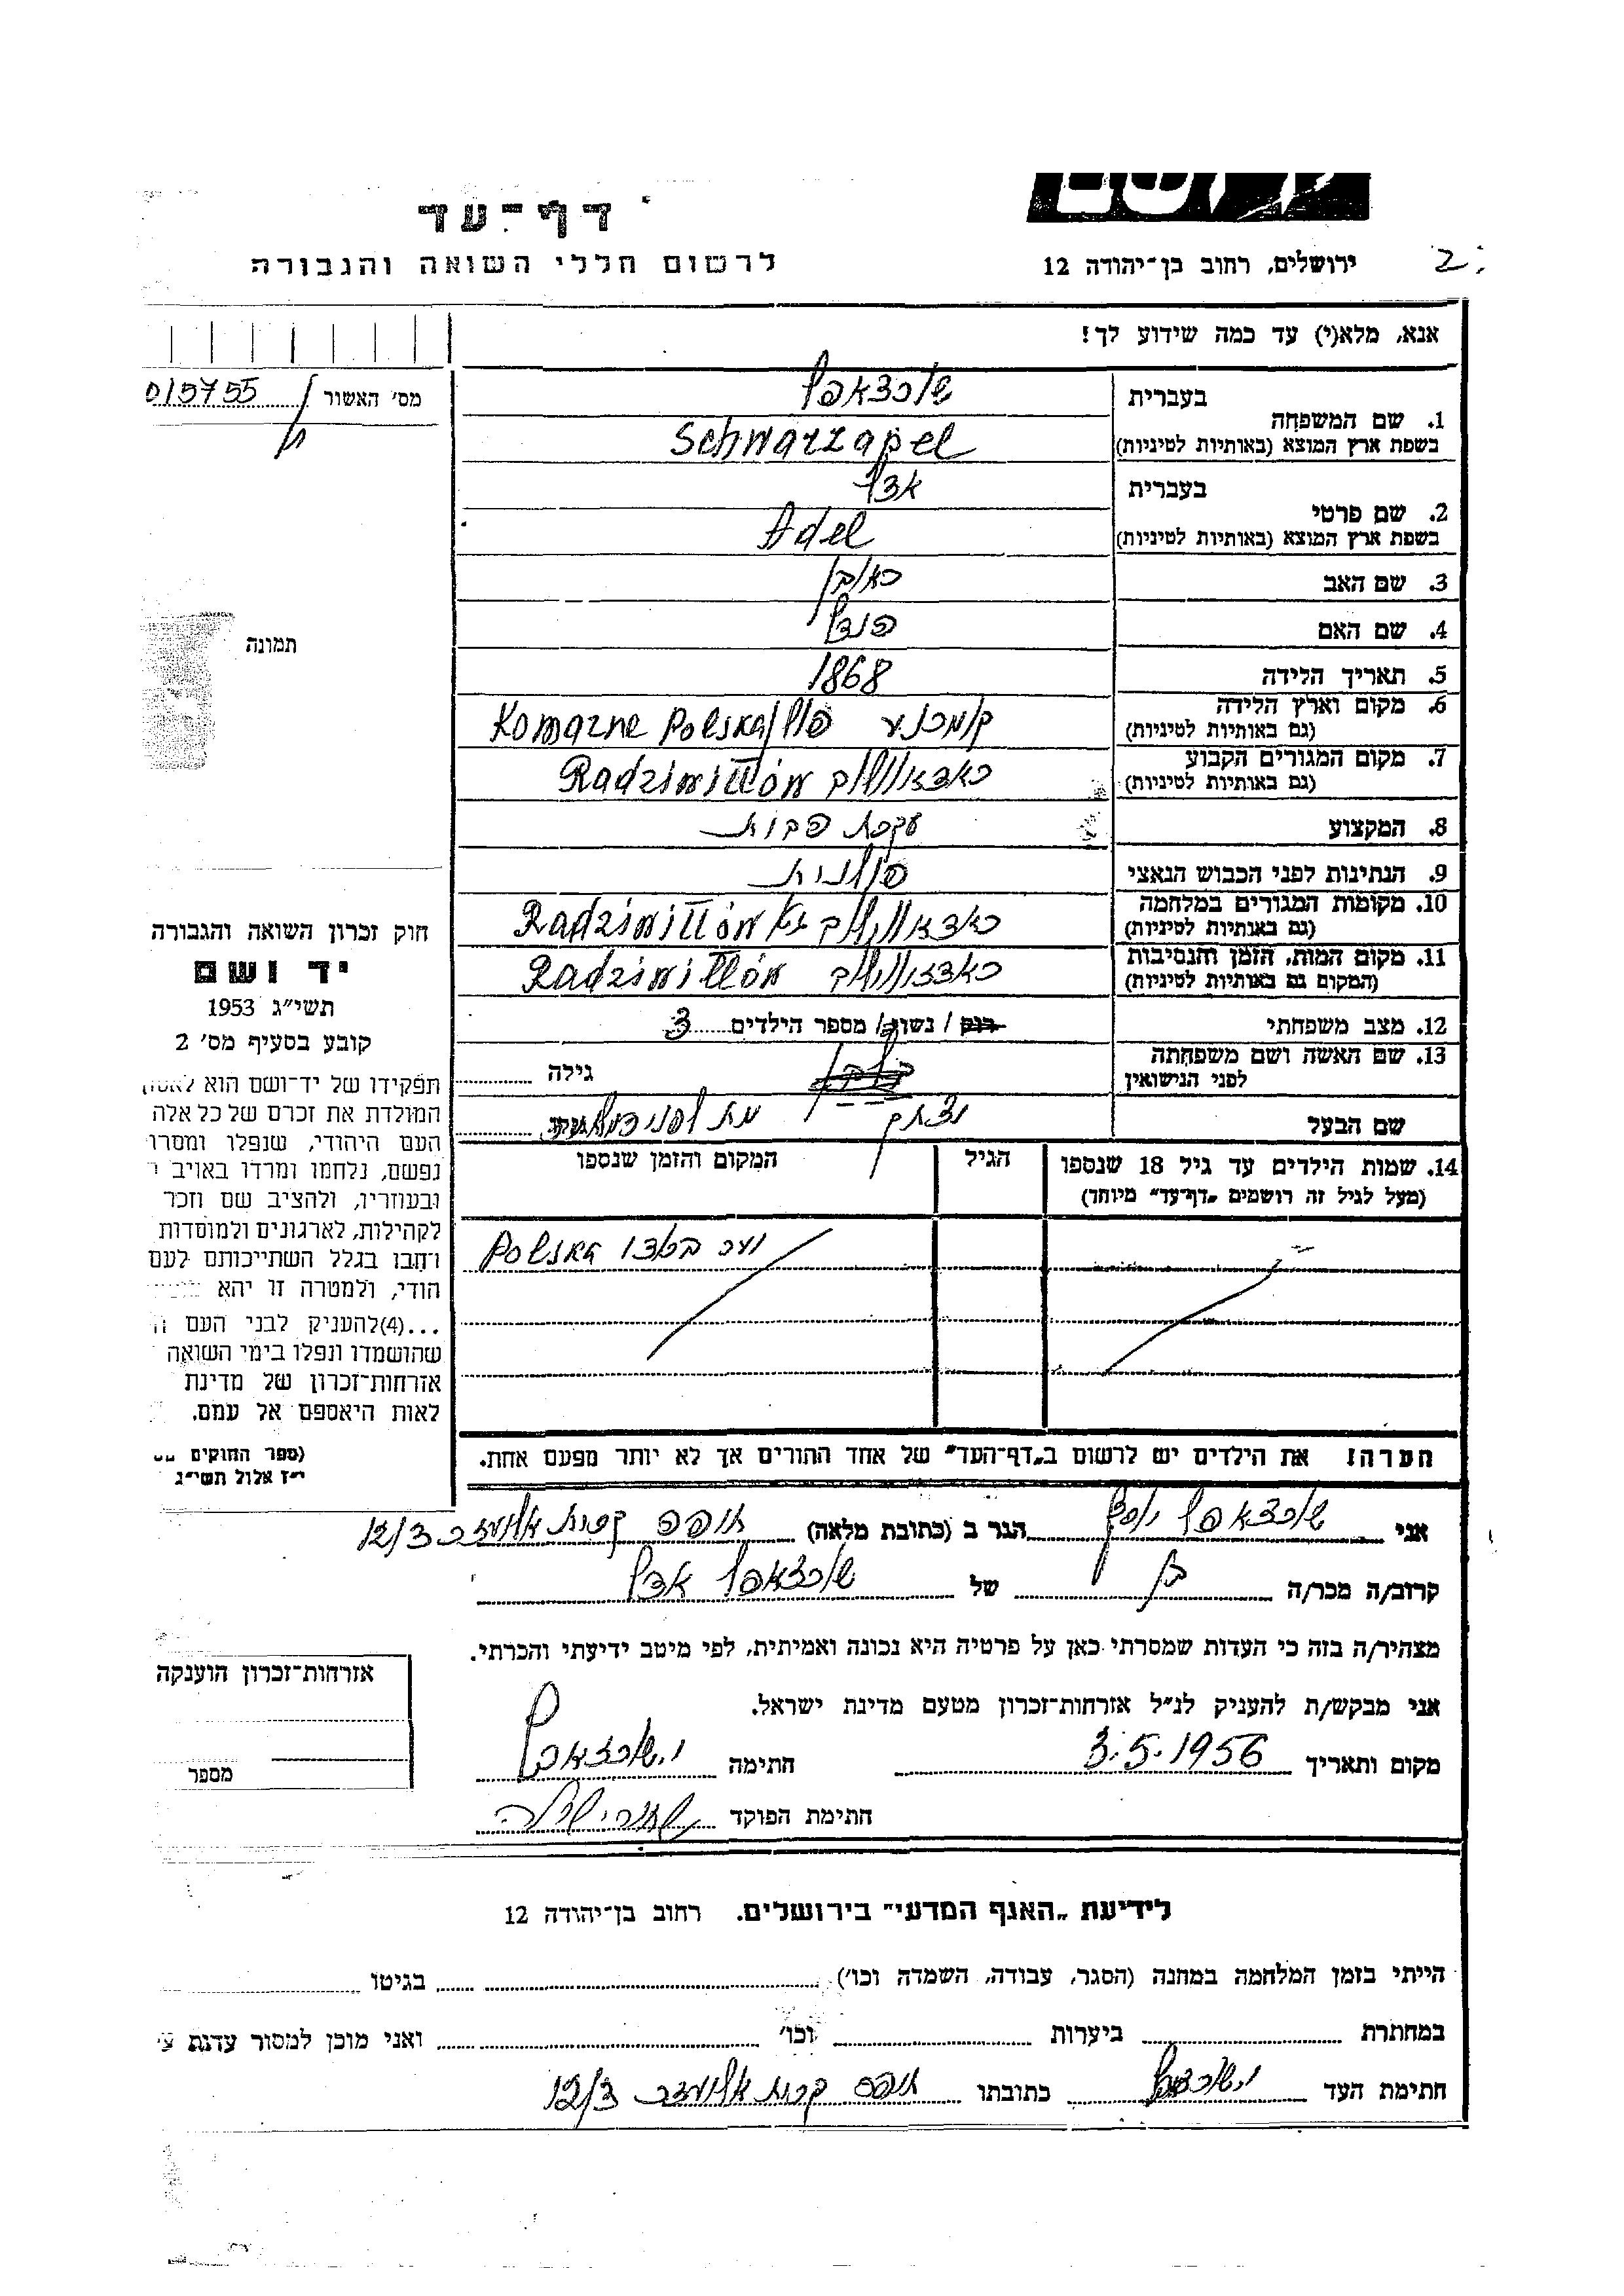 דף־עד
לרשום חללי השואה והגבורה
ירושלים, רחוב בן־יהודה 12
2.
אנא, מלא(י) עד כמה שידוע לך!
מס׳ האשור 015755
1. שם המשפחה
בעברית שורצאפל
בשפת ארץ המוצא (באותיות לטיניות) Schwarzapel
2. שם פרטי
בעברית אדל
בשפת ארץ המוצא (באותיות לטיניות) Adel
3. שם האב ראובן
4. שם האם פונדל
5. תאריך הלידה 1868
6. מקום וארץ הלידה
(גם באותיות לטיניות) Komarne Polska פולין
7. מקום המגורים הקבוע
(גם באותיות לטיניות) Radziwiłłów
8. המקצוע עקרת
9. הנתינות לפני הכבוש הנאצי פולנית
10. מקומות המגורים במלחמה
(גם באותיות לטיניות) Radziwiłłów
11. מקום המות, הזמן והנסיבות
(המקום גם באותיות לטיניות) Radziwiłłów
12. מצב משפחתי רוק / נשוי / מספר הילדים 3
13. שם האשה ושם משפחתה
לפני הנישואין
גילה
שם הבעל מת לפני
14. שמות הילדים עד גיל 18 שנספו
(מעל לגיל זה רושמים „דף־עד״ מיוחד)
הגיל
המקום והזמן שנספו
תמונה
חוק זכרון השואה והגבורה
יד ושם
תשי״ג 1953
קובע בסעיף מס׳ 2
תפקידו של יד־ושם הוא
המולדת את זכרם של כל אלה
העם היהודי, שנפלו ומסרו
נפשם, נלחמו ומרדו באויב
ובעוזריו, ולהציב שם וזכר
לקהילות, לארגונים ולמוסדות
בגלל השתייכותם לעם
הודי, ולמטרה זו יהא
...(4)להעניק לבני העם
שהושמדו ונפלו בימי השואה
אזרחות־זכרון של מדינת
לאות היאספם אל עמם.
(ספר החוקים
י״ז אלול תשי״ג
הערה! את הילדים יש לרשום ב„דף־העד״ של אחד ההורים אך לא יותר מפעם אחת.
אני שורצאפל יוסף הגר ב (כתובת מלאה) חיפה קרית אליעזר 12/3
קרוב/ה מכר/ה בן של שורצאפל אדל
מצהיר/ה בזה כי העדות שמסרתי כאן על פרטיה היא נכונה ואמיתית, לפי מיטב ידיעתי והכרתי.
אני מבקש/ת להעניק לנ״ל אזרחות־זכרון מטעם מדינת ישראל.
מקום ותאריך 3.5.1956 חתימה י. שורצאפל
חתימת הפוקד
אזרחות־זכרון הוענקה
מספר
לידיעת „האגף המדעי״ בירושלים. רחוב בן־יהודה 12
הייתי בזמן המלחמה במחנה (הסגר, עבודה, השמדה וכו׳) בגיטו
במחתרת ביערות וכו׳ ואני מוכן למסור עדות
חתימת העד י. שורצאפל כתובתו חיפה קרית אליעזר 12/3